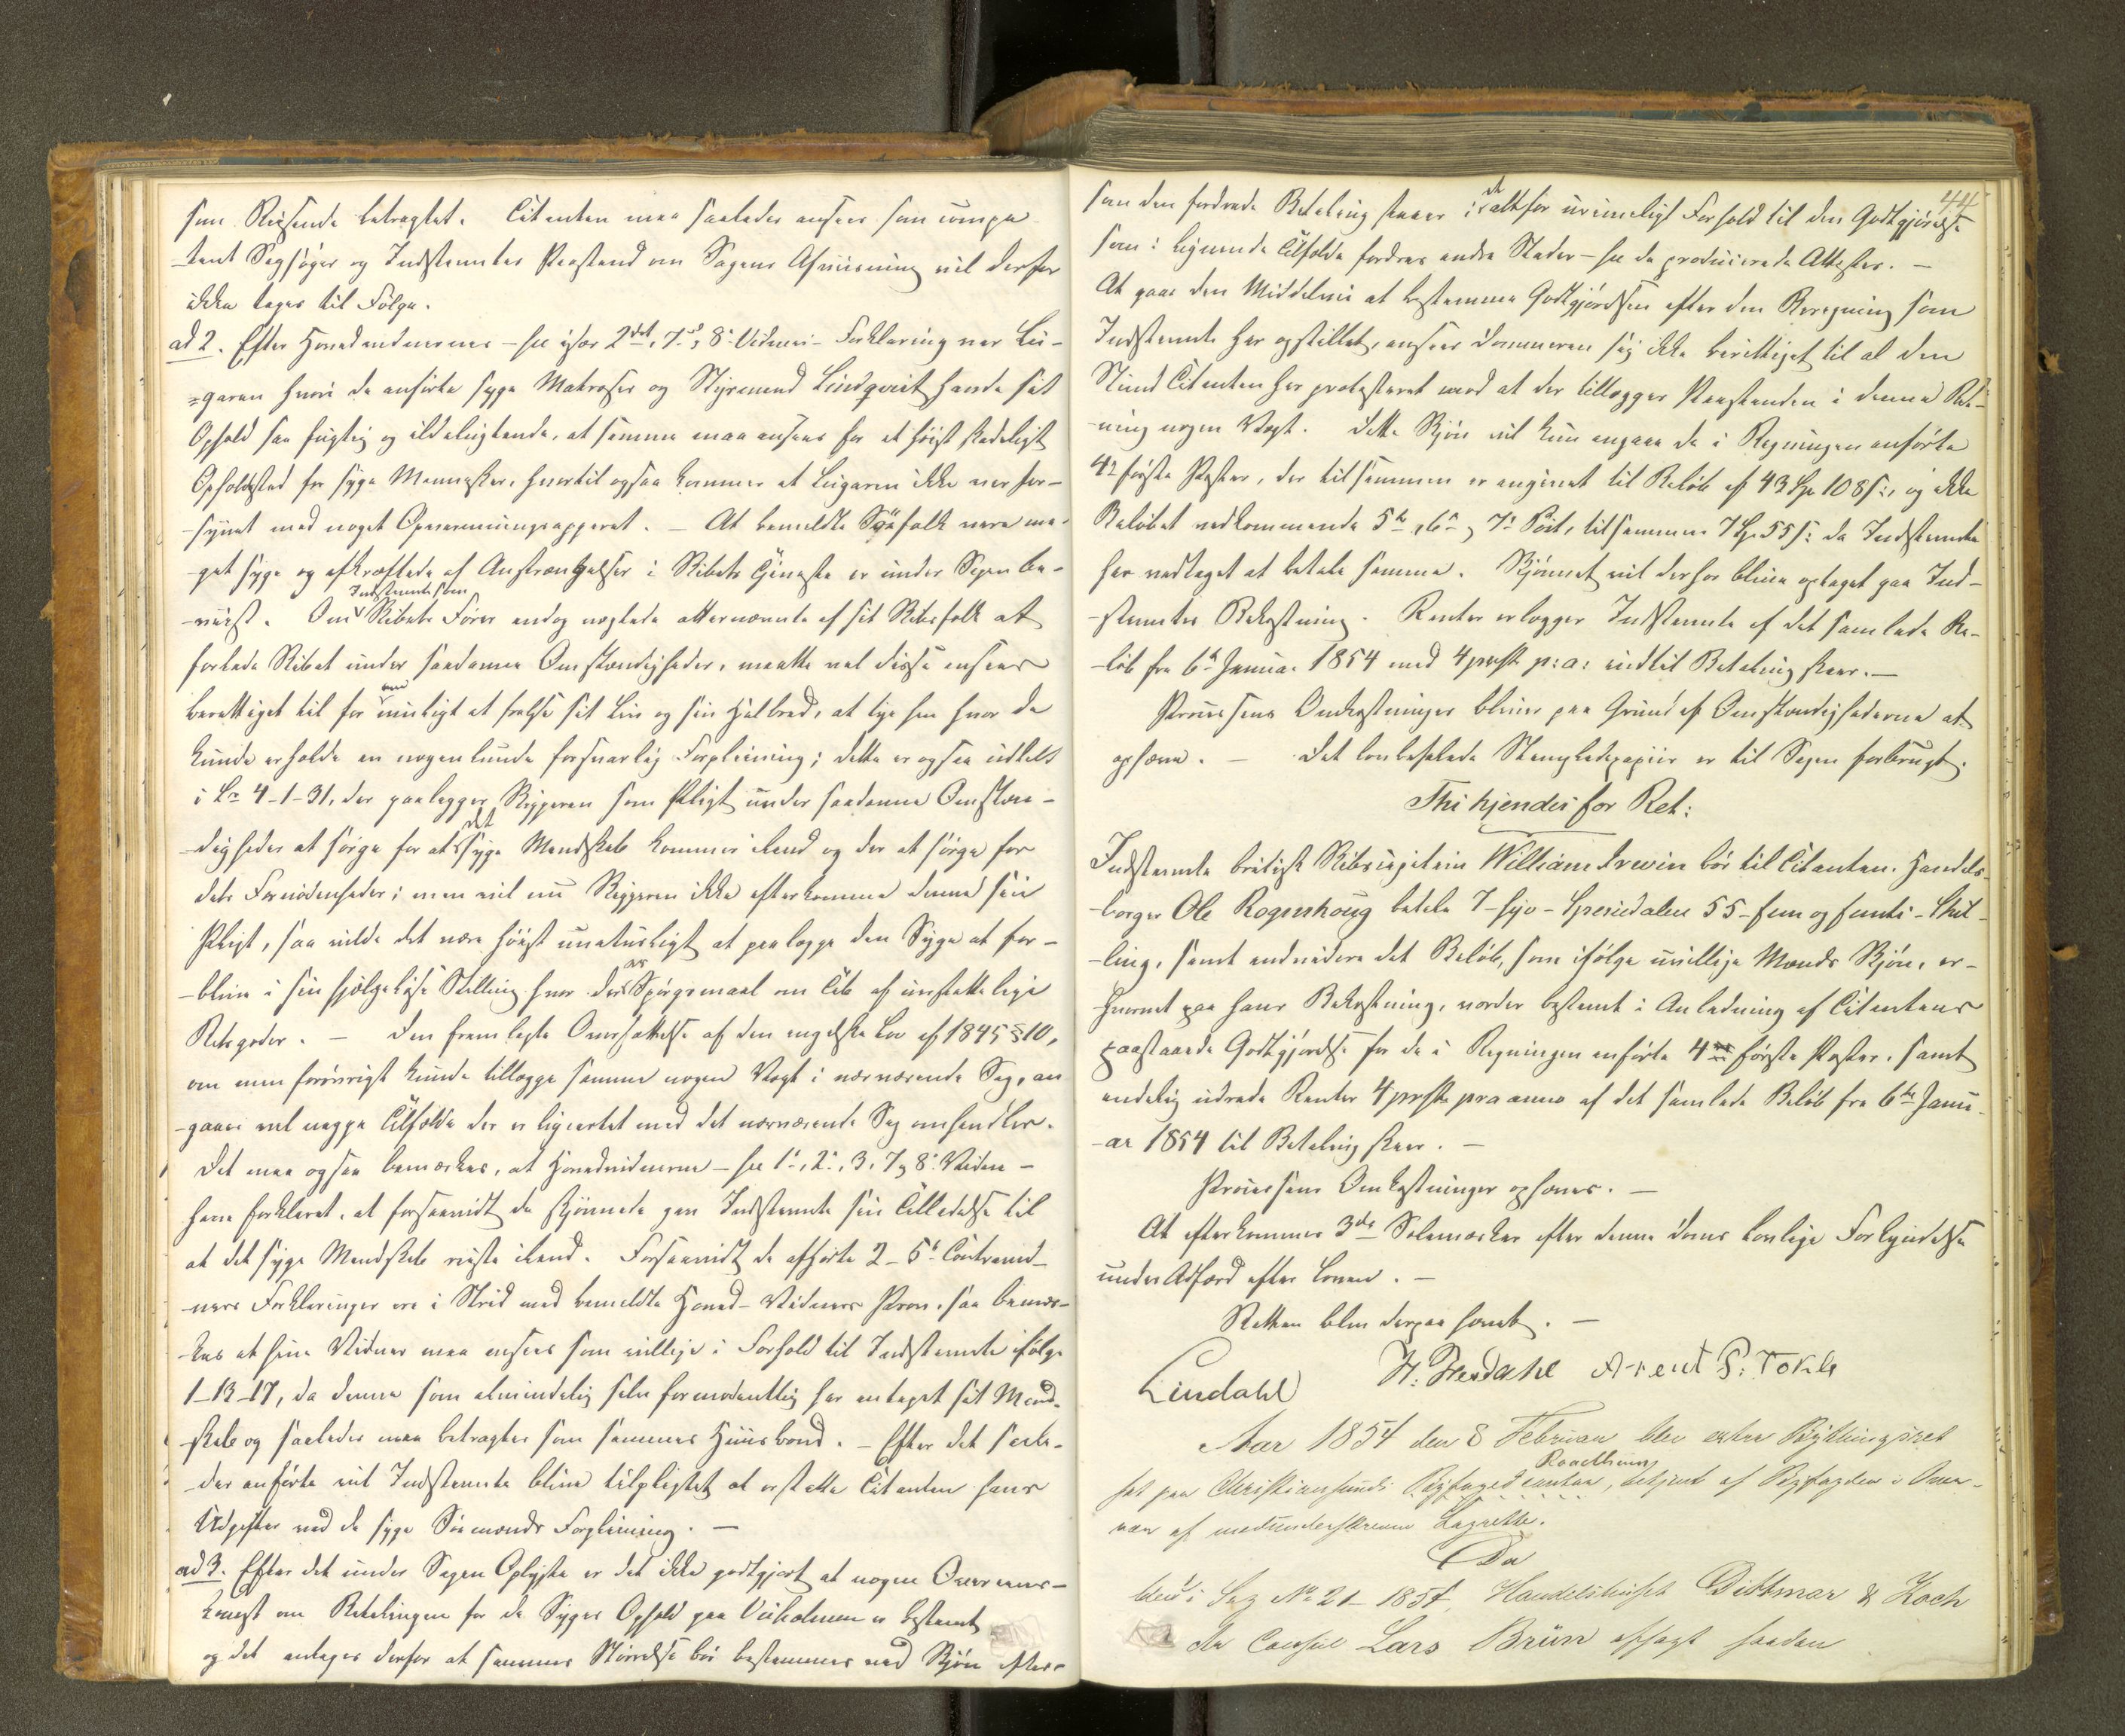 som Reisende betragtet. Citanten maa saaledes ansees som compe
-tent Sagsøger og Indstevntes Paastand om Sagens Afviisning vil derfor
ikke tages til Følge.
ad 2. Efter Hovedvidnernes – see især 2det, 7de, 8de Vidners Forklaring var Lu-
-garen hvori de anførte syge Matroser og Styrmand Lindqvist havde sit
Ophold saa fugtig og ildelugtende, at samme maa ansees for et høist skadeligt
Opholdsted for syge Mennesker, hvortil ogsaa kommer at Lugaren ikke var for-
-synet med noget Opvarmningsapparat. – At bemeldte Søefolk vare me-
-get syge og afkræftede af Anstrængelser i Skibets Tjeneste er under Sagen be-
-viist. Om Indstevnte som Skibets Fører endog negtede etternævnte af sit Skibsfolk at
forlade Skibet under saadanne Omstændigheder, maatte vel disse ansees
berettiget til for om muligt at frelse sit Liv og sin Helbred, at tye hen hvor de
kunde erholde en nogenlunde forsvarlig Forpleining; dette er ogsaa udtalt
i L: 4-1-31, der paalegger Skipperen som Pligt under saadanne Omstæn-
-digheder at sørge for at det syge Mandskab kommer iland og der at sørge for
dets Fornødenheder; men vil nu Skipperen ikke efterkomme denne sin
Pligt, saa vilde det være høist unaturligt at paalegge den Syge at for-
-blive i sin hjælpeløse Stilling hvor der er Spørgsmaal om Tab af uerstattelige
Retsgoder. – Den fremlagte Oversættelse af den engelske Lov af 1845 § 10,
om man forøvrigt kunde tillægge samme nogen Vægt i nærværende Sag, an
-gaaer vel neppe Tilfælde der er ligeartet med det nærværende Sag omhandler.
Det maa ogsaa bemærkes, at Hovedvidnerne – see 1, 2, 3, 7 og 8 Vidne –
have forklaret, at forsaavidt de skjønnede gav Indstevnte sin Tilladelse til
at det syge Mandskab reiste iland. Forsaavidt de afhørte 2 – 5 Contravid-
-ners Forklaringer ere i Strid med bemeldte Hoved-Vidners Prov, saa bemær-
-kes at hine Vidner maa ansees som villige i Forhold til Indstevnte ifølge
1-13-17, da denne som almindelig selv formodentlig har antaget sit Mand-
skab og saaledes maa betragtes som sammes Huusbond. – Efter det saale-
des anførte vil Indstevnte blive tilpligtet at erstatte Citanten hans
Udgifter ved de syge Sømænds Forpleining. –
ad 3. Efter det under Sagen Oplyste er det ikke godtgjort at nogen Overens-
komst om Betalingen for de Syges Ophold paa Viikholmen er bestemt
og det antages derfor at sammes Størrelse bør bestemmes ved Skjøn efter-
44
som den fordrede Betaling staaer i et altfor urimeligt Forhold til den Godtgjørelse
som i lignende Tilfælde fordres andre Steder – see de producerede Attester. –
At gaae den Middelvei at bestemme Godtgjørelsen efter den Beregning som
Indstevnte har opstillet, ansees Dommeren sig ikke berettiget til al den
Stund Citanten har protesteret mod at der tillegges Paastanden i denne Ret-
-ning nogen Vægt. Dette Skjøn vil kun angaae de i Regningen anførte
4 første Poster, der tilsammen er angivet til Beløb af 43 Sp 108 s:, og ikke
Beløbet vedkommende 5te, 6te og 7de Post, tilsammen 7 Sp. 55 s: da Indstevnte
har vedtaget at betale samme. Skjønnet vil derfor blive optaget paa Ind-
-stevntes Bekostning. Renter erlægger Indstevnte af det samlede Be-
-løb fra 6te Januar 1854 med 4 prCt p: a: indtil Betaling skeer. –
Processens Omkostninger blive paa Grund af Omstændighederne at
ophæve. – Det lovbefalede Stempledepapiir er til Sagen forbrugt.
Thi kjendes for Ret:
Indstevnte britisk Skibscapitain William Irewin bør til Citanten, Handels-
-borger Ole Rognskoug betale 7 – syv – Speciedaler 55 – fem og femti – Skil-
-ling, samt endvidere det Beløb, som ifølge uvillige Mænds Skjøn, er-
-hvervet paa hans Bekostning, vorder bestemt i Anledning af Citantens
paastaaede Godtgjørelse for de i Regningen anførte 4 første Poster, samt
endelig udrede Renter 4 prCto pro anno af det samlede Beløb fra 6te Janu-
-ar 1854 til Betaling skeer. –
Processens Omkostninger ophæves. –
At efterkommes 3de Solemærker efter denne Doms lovlige Forkyndelse
under Adfærd efter Loven. –
Retten blev derpaa hævet. –
Lindahl
Arent P: Tokle
Aar 1854 den 8 Februar blev extra Bythingsret
sat paa Christiansunds Raadhuus, betjent af Byfogden i Over-
vær af medunderskrevne Lagrette.
Da
blev i Sag No 21 – 1854, Handelshuset Dittmar & Koch
ctr Consul Lars Brün afsagt saadan